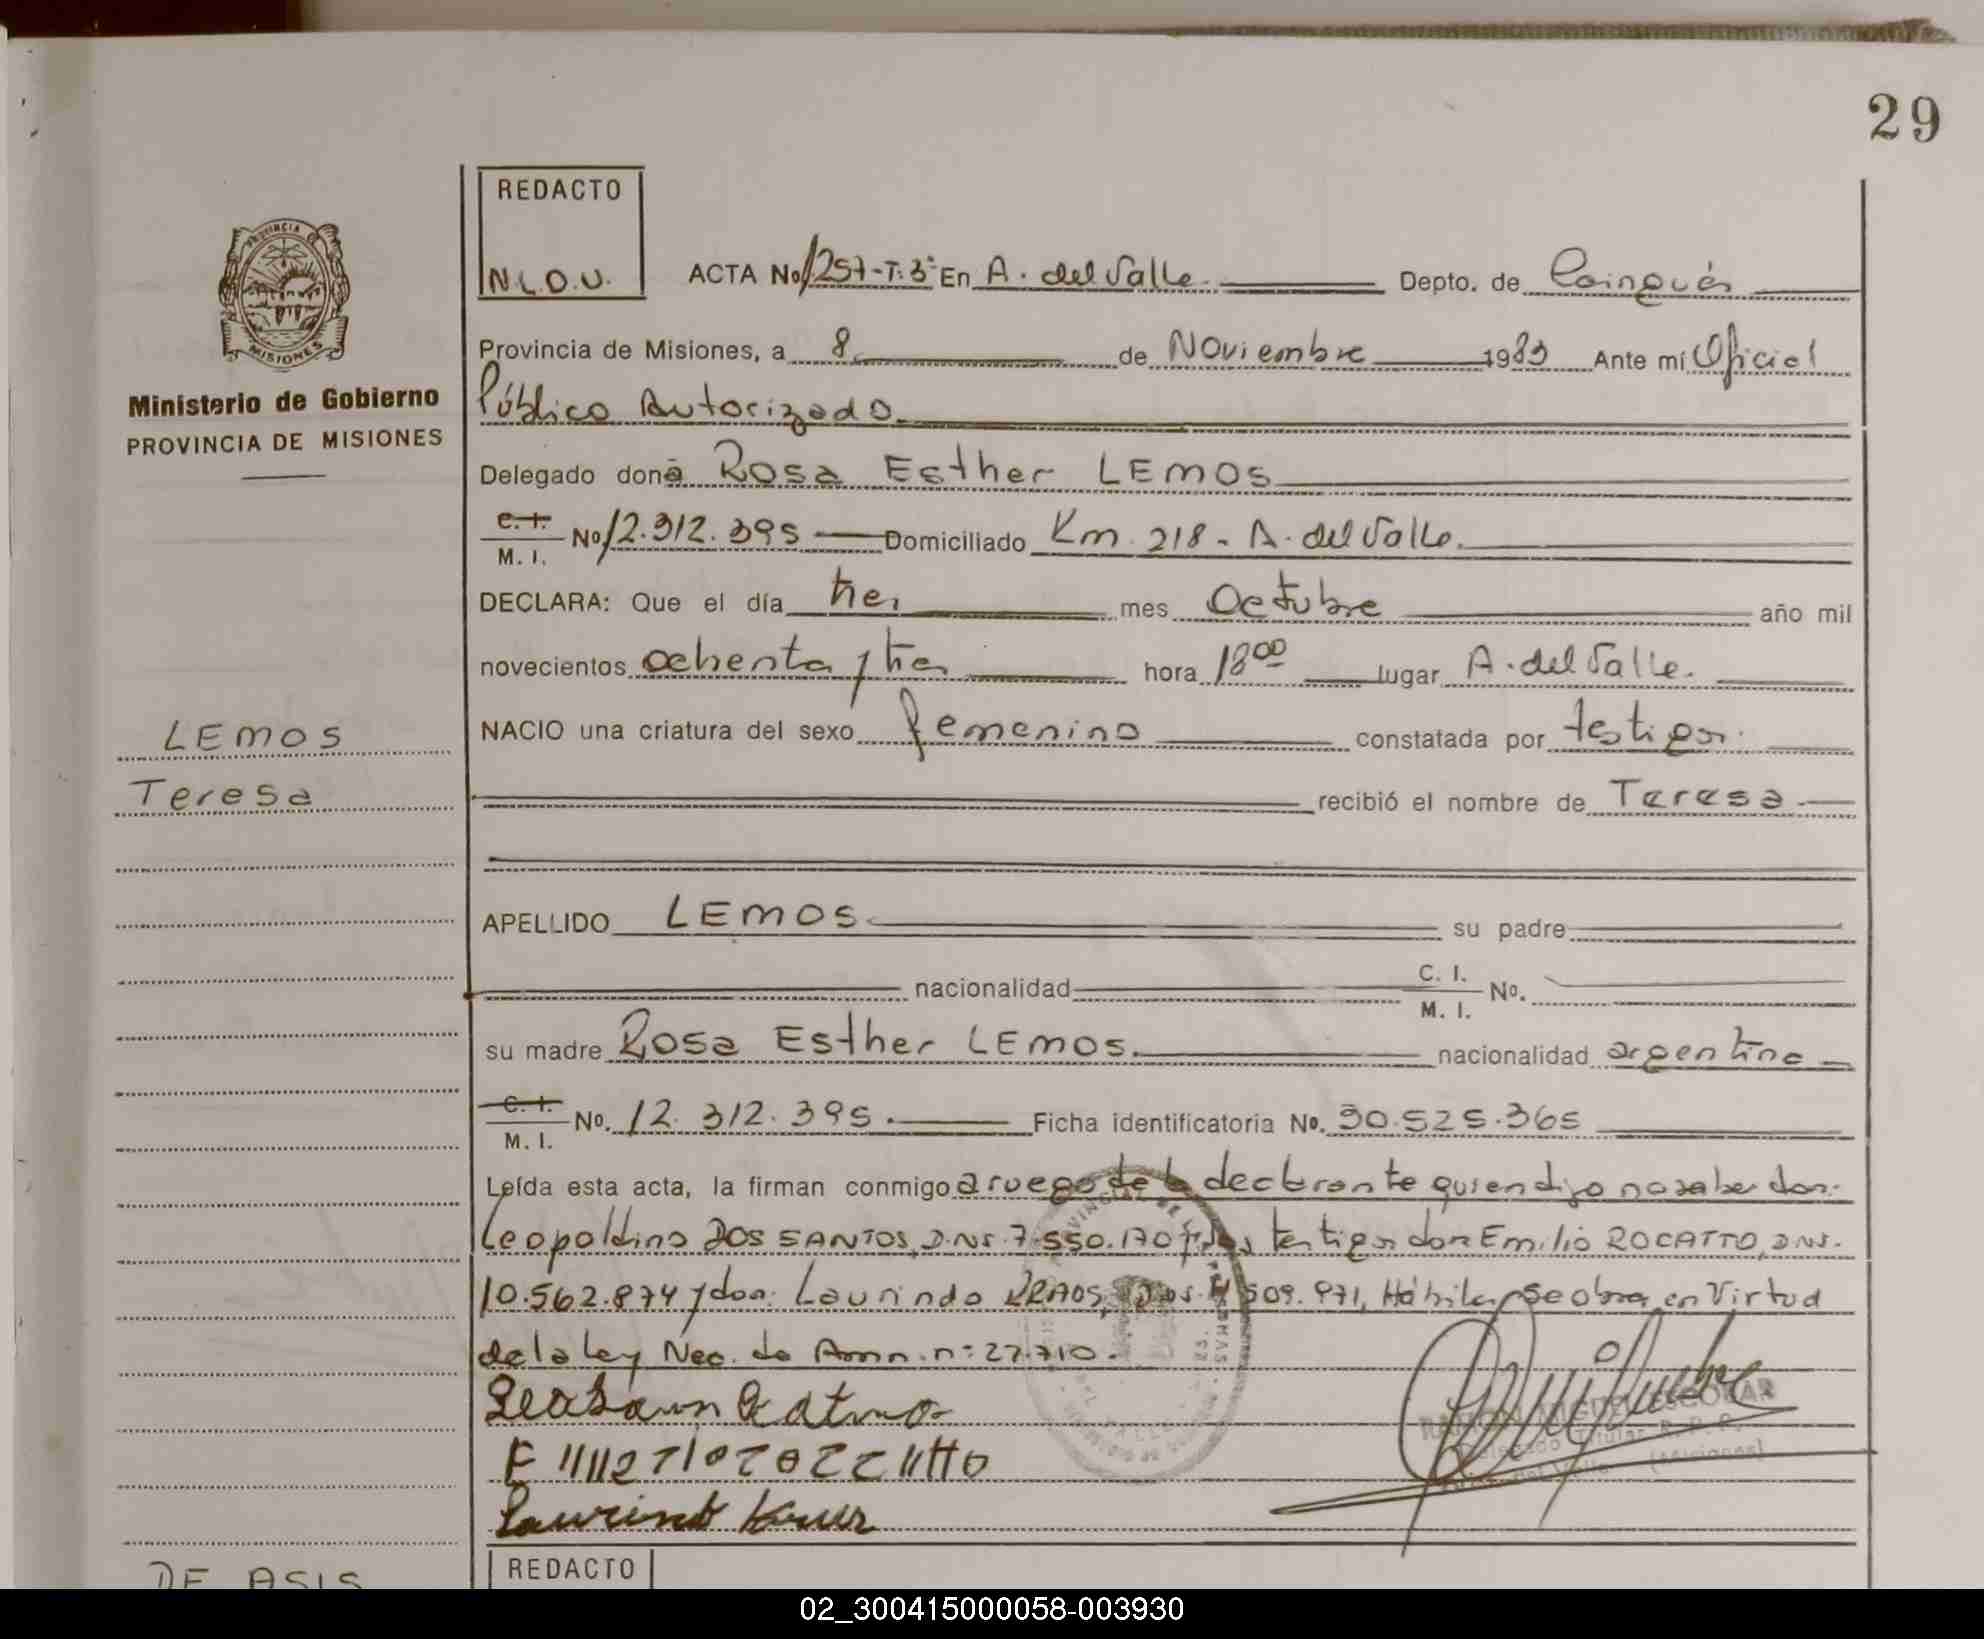 29
REDACTO
N.L.O.U.
ACTA No 1257-T:3º En A. del Valle Depto. de Cainguás
Provincia de Misiones, a 8 de Noviembre 1983 Ante mí Oficial
Público Autorizado.
Delegado dona Rosa Esther LEMOS
C. I.
M. I. No 12.312.395 Domiciliado Km. 218 - A. del Valle.
DECLARA: Que el día tres mes Octubre año mil
novecientos ochenta y tres hora 18 00 lugar A. del Valle.
NACIO una criatura del sexo femenino constatada por testigos.
recibió el nombre de Teresa
APELLIDO LEMOS su padre
nacionalidad C. I. M. I. No.
su madre Rosa Esther LEMOS. nacionalidad argentina
C. I.
M. I. No. 12.312.395. Ficha identificatoria No. 30.525.365
Leída esta acta, la firman conmigo a ruego de la declarante quien dijo no saber don:
Leopoldino DOS SANTOS, D.N.I. 7.550.170 y los testigos don Emilio ROCATTO, D.N.I.
10.562.874 y don: Laurindo 509.971, Hábiles, se obra en Virtud
de la Ley Nac. de Amn. nº 22.710.
Laurindo
RAMON MIGUEL ESCOBAR
Delegado Titular R.P.P.
(Misiones)
PROVINCIA
MISIONES
Ministerio de Gobierno
PROVINCIA DE MISIONES
LEMOS
Teresa
DE ASIS
REDACTO
02_300415000058-003930